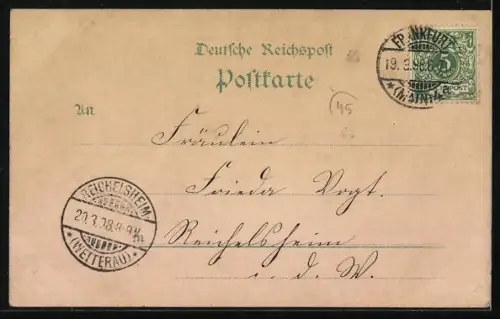 Deutsche Reichspost
Postkarte
An
Fräulein
Frieda Vogt.
Reichelsheim
i. d. W.
FRANKFURT
19. 3. 98.
*(MAIN)
5
45
REICHELSHEIM
20.3.98.8-9V.
*(WETTERAU)*